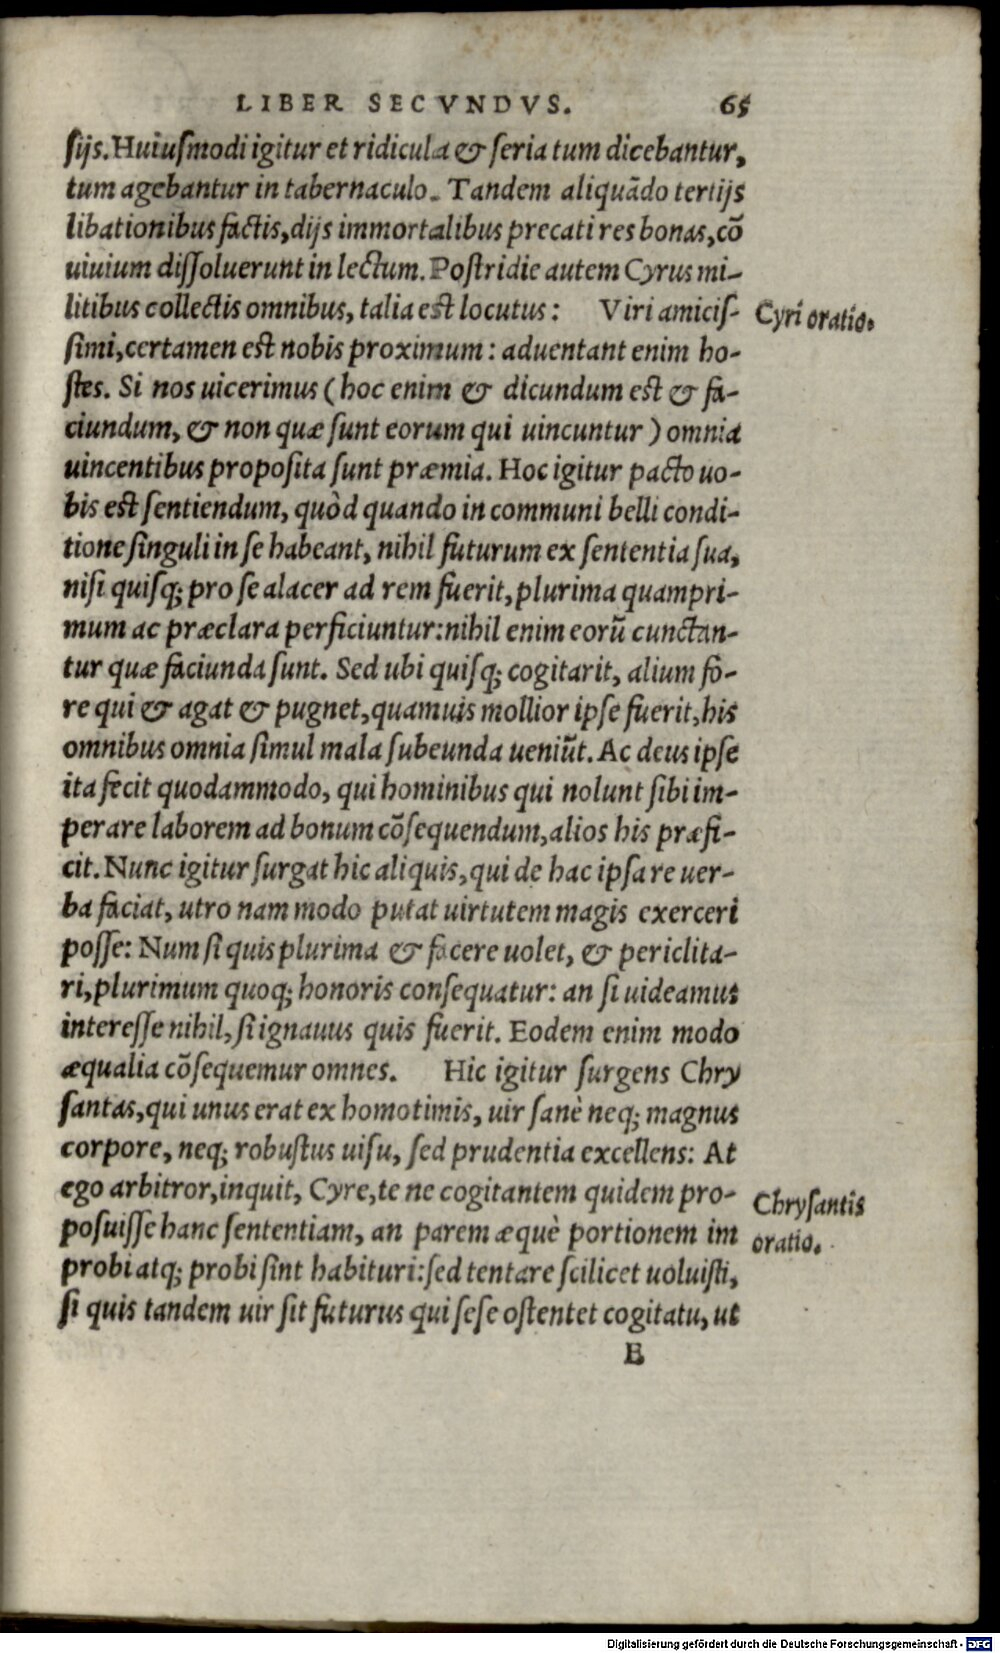 LIBER SECVNDVS. 65
sijs. Huiusmodi igitur et ridicula & seria tum dicebantur,
tum agebantur in tabernaculo. Tandem aliquãdo tertijs
libationibus factis, dijs immortalibus precati res bonas, cõ
uiuium dissoluerunt in lectum. Postridie autem Cyrus mi-
litibus collectis omnibus, talia est locutus: Viri amicis-
Cyri oratio.
simi, certamen est nobis proximum: aduentant enim ho-
stes. Si nos uicerimus (hoc enim & dicundum est & fa-
ciundum, & non quæ sunt eorum qui uincuntur) omnia
uincentibus proposita sunt præmia. Hoc igitur pacto uo-
bis est sentiendum, quòd quando in communi belli condi-
tione singuli in se habeant, nihil futurum ex sententia sua,
nisi quisq; pro se alacer ad rem fuerit, plurima quampri-
mum ac præclara perficiuntur: nihil enim eorũ cunctan-
tur quæ faciunda sunt. Sed ubi quisq; cogitarit, alium fo-
re qui & agat & pugnet, quamuis mollior ipse fuerit, his
omnibus omnia simul mala subeunda ueniũt. Ac deus ipse
ita fecit quodammodo, qui hominibus qui nolunt sibi im-
perare laborem ad bonum cõsequendum, alios his præfi-
cit. Nunc igitur surgat hic aliquis, qui de hac ipsa re uer-
ba faciat, utro nam modo putat uirtutem magis exerceri
posse: Num si quis plurima & facere uolet, & periclita-
ri, plurimum quoq; honoris consequatur: an si uideamus
interesse nihil, si ignauus quis fuerit. Eodem enim modo
æqualia cõsequemur omnes. Hic igitur surgens Chry
santas, qui unus erat ex homotimis, uir sanè neq; magnus
corpore, neq; robustus uisu, sed prudentia excellens: At
ego arbitror, inquit, Cyre, te ne cogitantem quidem pro-
Chrysantis
posuisse hanc sententiam, an parem æquè portionem im
oratio.
probi atq; probi sint habituri: sed tentare scilicet uoluisti,
si quis tandem uir sit futurus qui sese ostentet cogitatu, ut
E
Digitalisierung gefördert durch die Deutsche Forschungsgemeinschaft - DFG